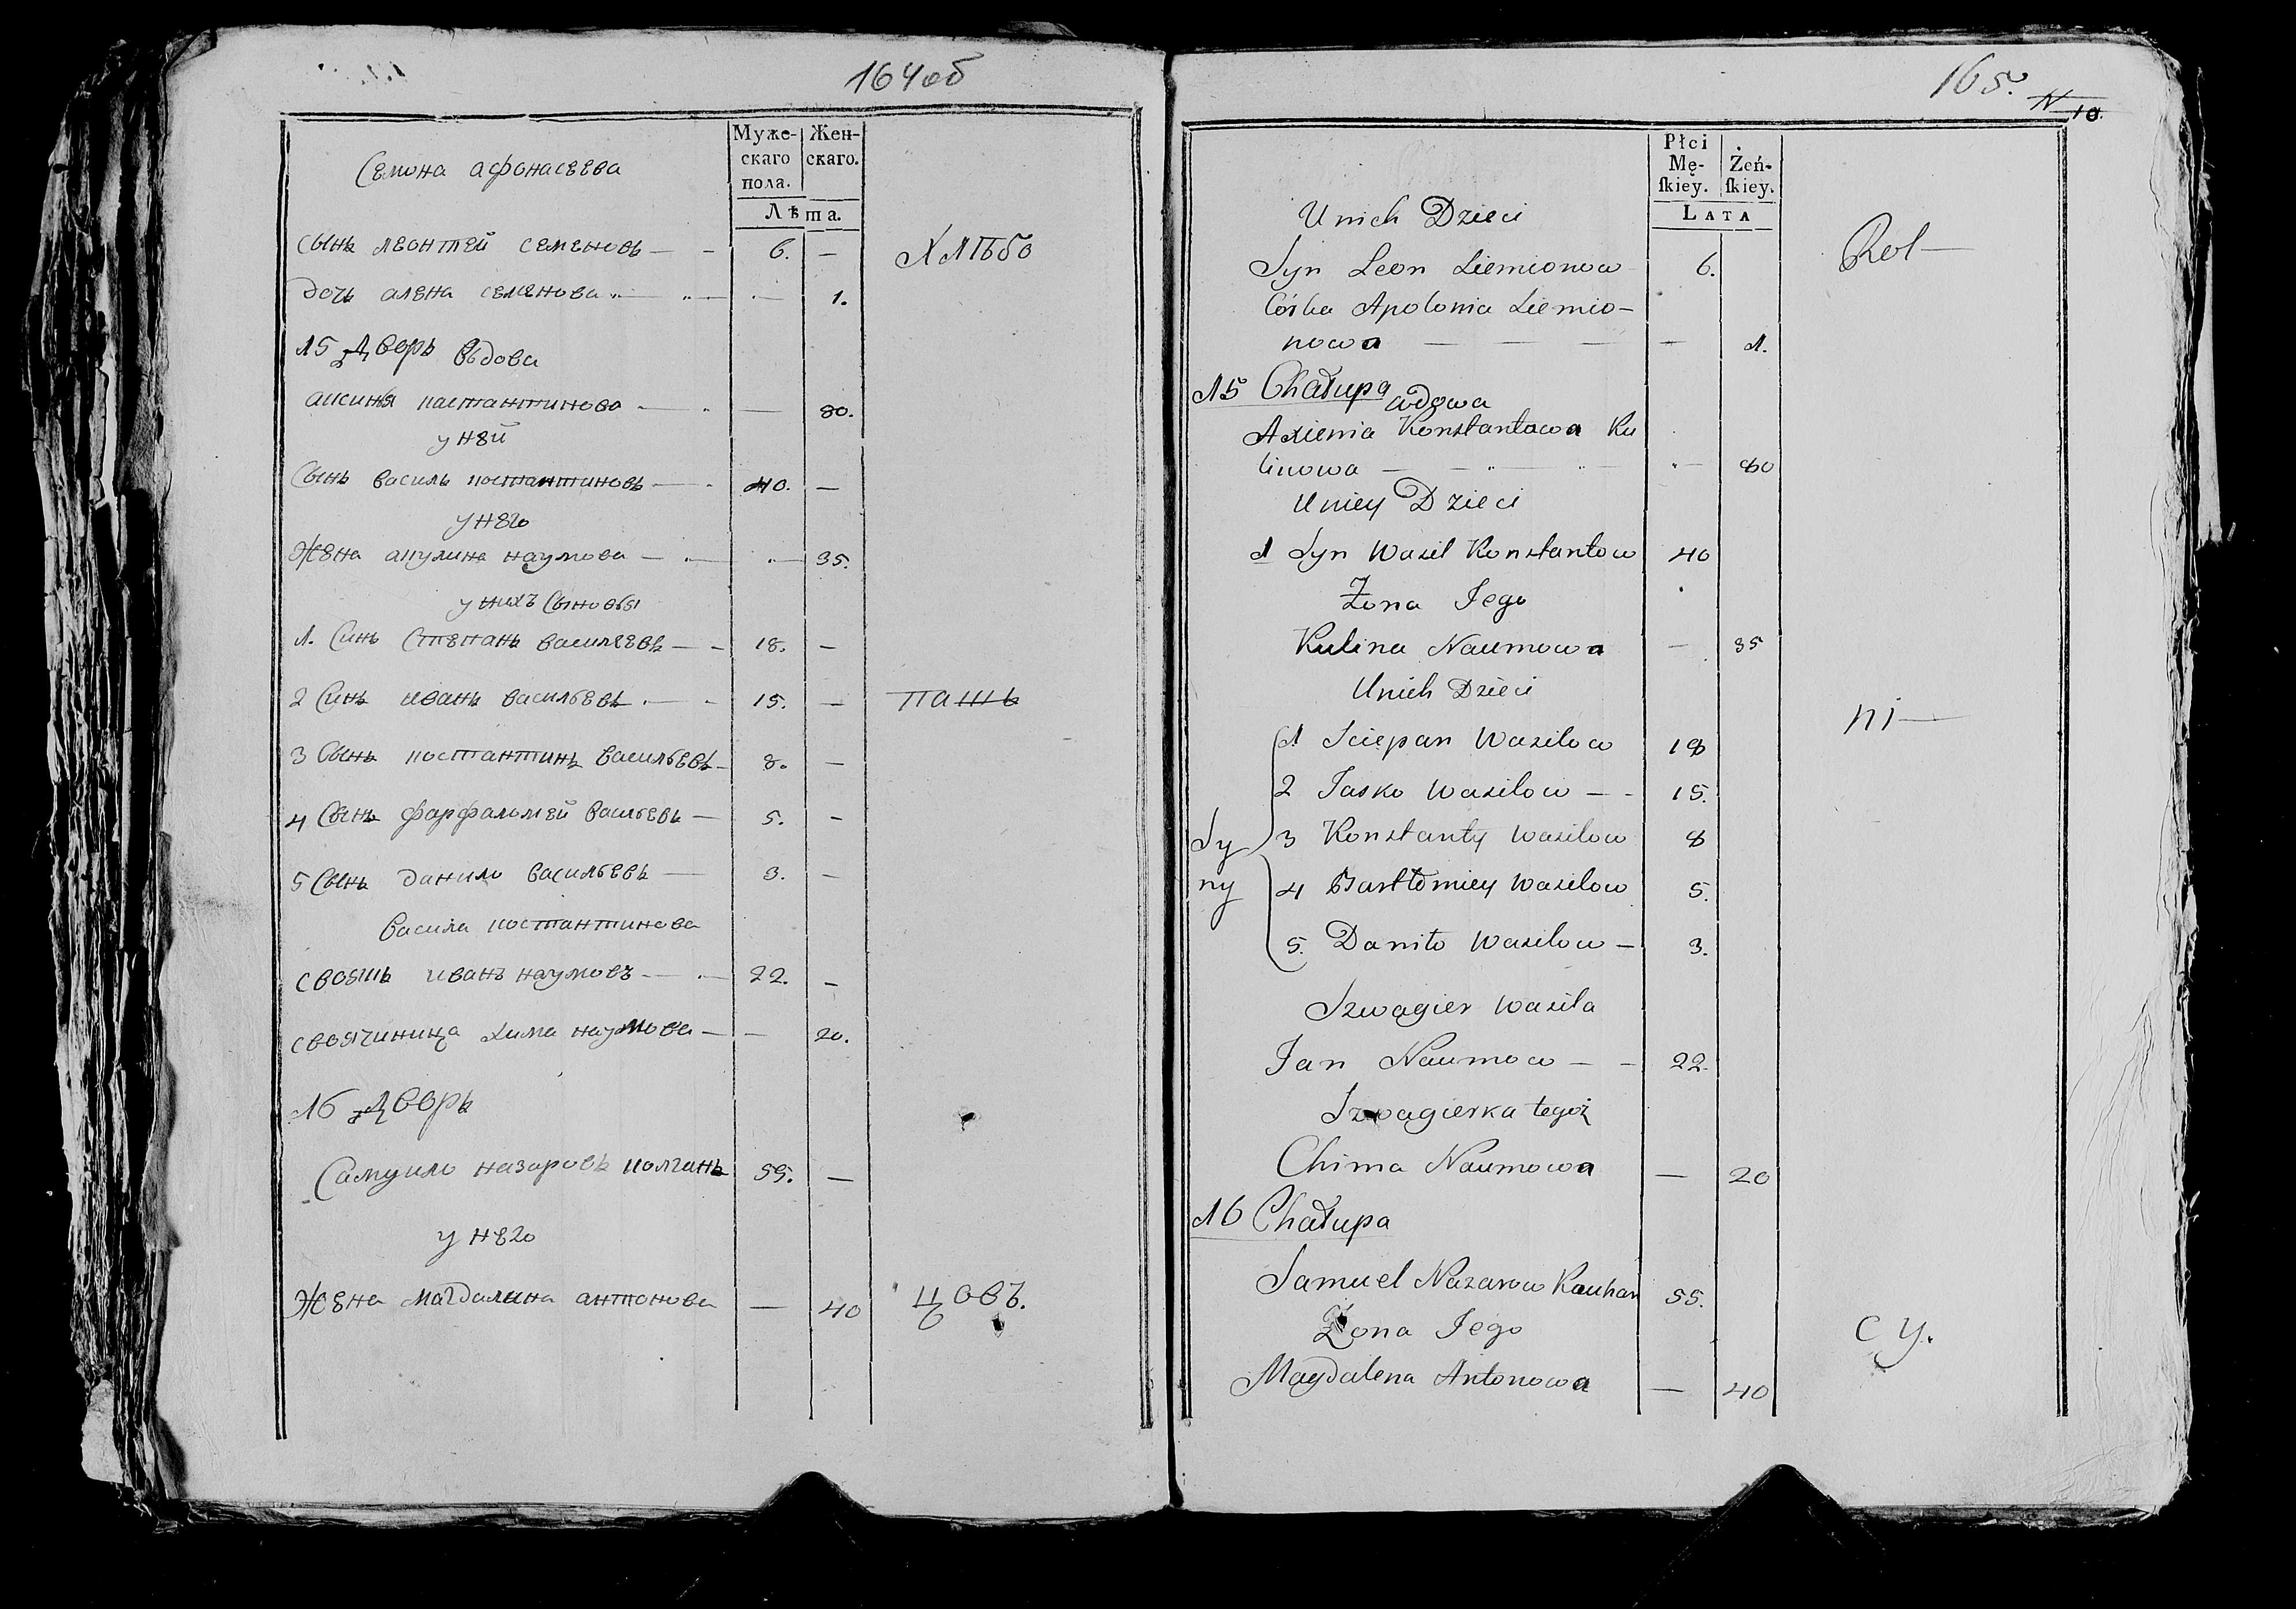 164об
Муже-
скаго
пола.
Жен-
скаго.
Лѣта.
Семона афонасеева
сынъ леонтей семеновъ — - 6. — ХЛѢбо
дочь алена семенова — — 1.
15 Дворъ вдова
аксинья костантинова — — 80.
у ней
Сынъ василь костантиновъ — 40. —
у него
Жена акулина наумова — — 35.
у нихъ Сыновья
1. Синъ Степанъ василеевъ — - 18. —
2 Синъ иванъ васильевъ — - 15. — ПАШЬ
3 Сынъ костантинъ васильевъ - 8. —
4 Сынъ фарфальмей васльевъ — 5. -
5 Сынъ данило васильевъ — 3. —
василя костантинова
своякъ иванъ наумовъ — — 22. —
своячиница хима наумова — — 20.
16 Дворъ
Самуило назаровъ колчанъ 55. —
у него
Жена магдалина антонова — 40 цовъ.
165.
N 10.
Płci
Mę-
ſkiey.
Żeń-
ſkiey.
LATA
Unich Dzieci
Syn Leon Siemionow 6. Rol—
Córka Apolonia Siemio-
nowa — — — — 1.
15 Chałupa wdowa
Axienia Konstantowa Ku
linowa — — — — 80
Uniey Dzieci
1 Syn Wasil Konstantow 40
Żona Jego
Kulina Naumowa — 35
Unich Dzieci
ni—
1 Sciepan Wasilow 18
2 Jasko Wasilow — - 15.
Sy
ny
3 Konstanty Wasilow 8
4 Bartłomiey Wasilow 5.
5. Daniło Wasilow — 3.
Szwagier Wasila
Jan Naumow — — 22.
Szwagierka tegoż
Chima Naumowa — 20
16 Chałupa
Samuel Nazarow Kauhan 55.
Żona Jego
cy.
Magdalena Antonowa — 40